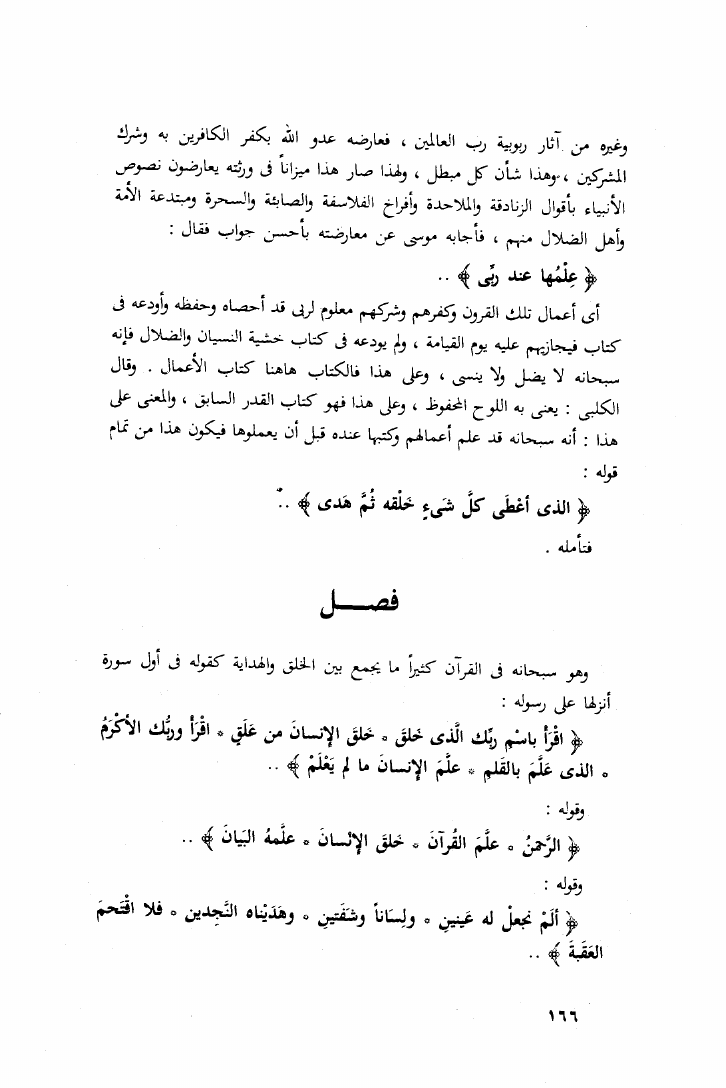 وغيره من آثار ربوبية رب العالمين ، فعارضه عدو الله بكفر الكافرين به وشرك
المشركين ، وهذا شأن كل مبطل ، ولهذا صار هذا ميزاناً فى ورثته يعارضون نصوص
الأنبياء بأقوال الزنادقة والملاحدة وأفراخ الفلاسفة والصابئة والسحرة ومبتدعة الأمة
وأهل الضلال منهم ، فأجابه موسى عن معارضته بأحسن جواب فقال :
﴿ عِلْمُها عند ربِّى ﴾ ..
أى أعمال تلك القرون وكفرهم وشركهم معلوم لربى قد أحصاه وحفظه وأودعه فى
كتاب فيجازيهم عليه يوم القيامة ، ولم يودعه فى كتاب خشية النسيان والضلال فإنه
سبحانه لا يضل ولا ينسى ، وعلى هذا فالكتاب هاهنا كتاب الأعمال . وقال
الكلبى : يعنى به اللوح المحفوظ ، وعلى هذا فهو كتاب القدر السابق ، والمعنى على
هذا : أنه سبحانه قد علم أعمالهم وكتبها عنده قبل أن يعملوها فيكون هذا من تمام
قوله :
﴿ الذى أعْطَى كلَّ شَىءٍ خَلْقه ثُمَّ هَدى ﴾ ..
فتأمله .
فصـــل
وهو سبحانه فى القرآن كثيراً ما يجمع بين الخلق والهداية كقوله فى أول سورة
أنزلها على رسوله :
﴿ اقْرَأ باسْمِ ربِّك الَّذى خلقَ * خَلقَ الإنسانَ من عَلَقٍ * اقْرَأ وربُّك الأكْرَمُ
* الذى عَلَّمَ بالقَلمِ * علَّمَ الإنسانَ ما لم يَعْلَمْ ﴾ ..
وقوله :
﴿ الرَّحمنُ * علَّمَ القُرآنَ * خَلقَ الإنْسانَ * علَّمهُ البَيانَ ﴾ ..
وقوله :
﴿ ألَمْ نجعلْ له عَينينِ * ولِسَاناً وشَفَتينِ * وهَدَيْناه النَّجدين * فلا اقْتَحمَ
العَقَبةَ ﴾ ..
١٦٦